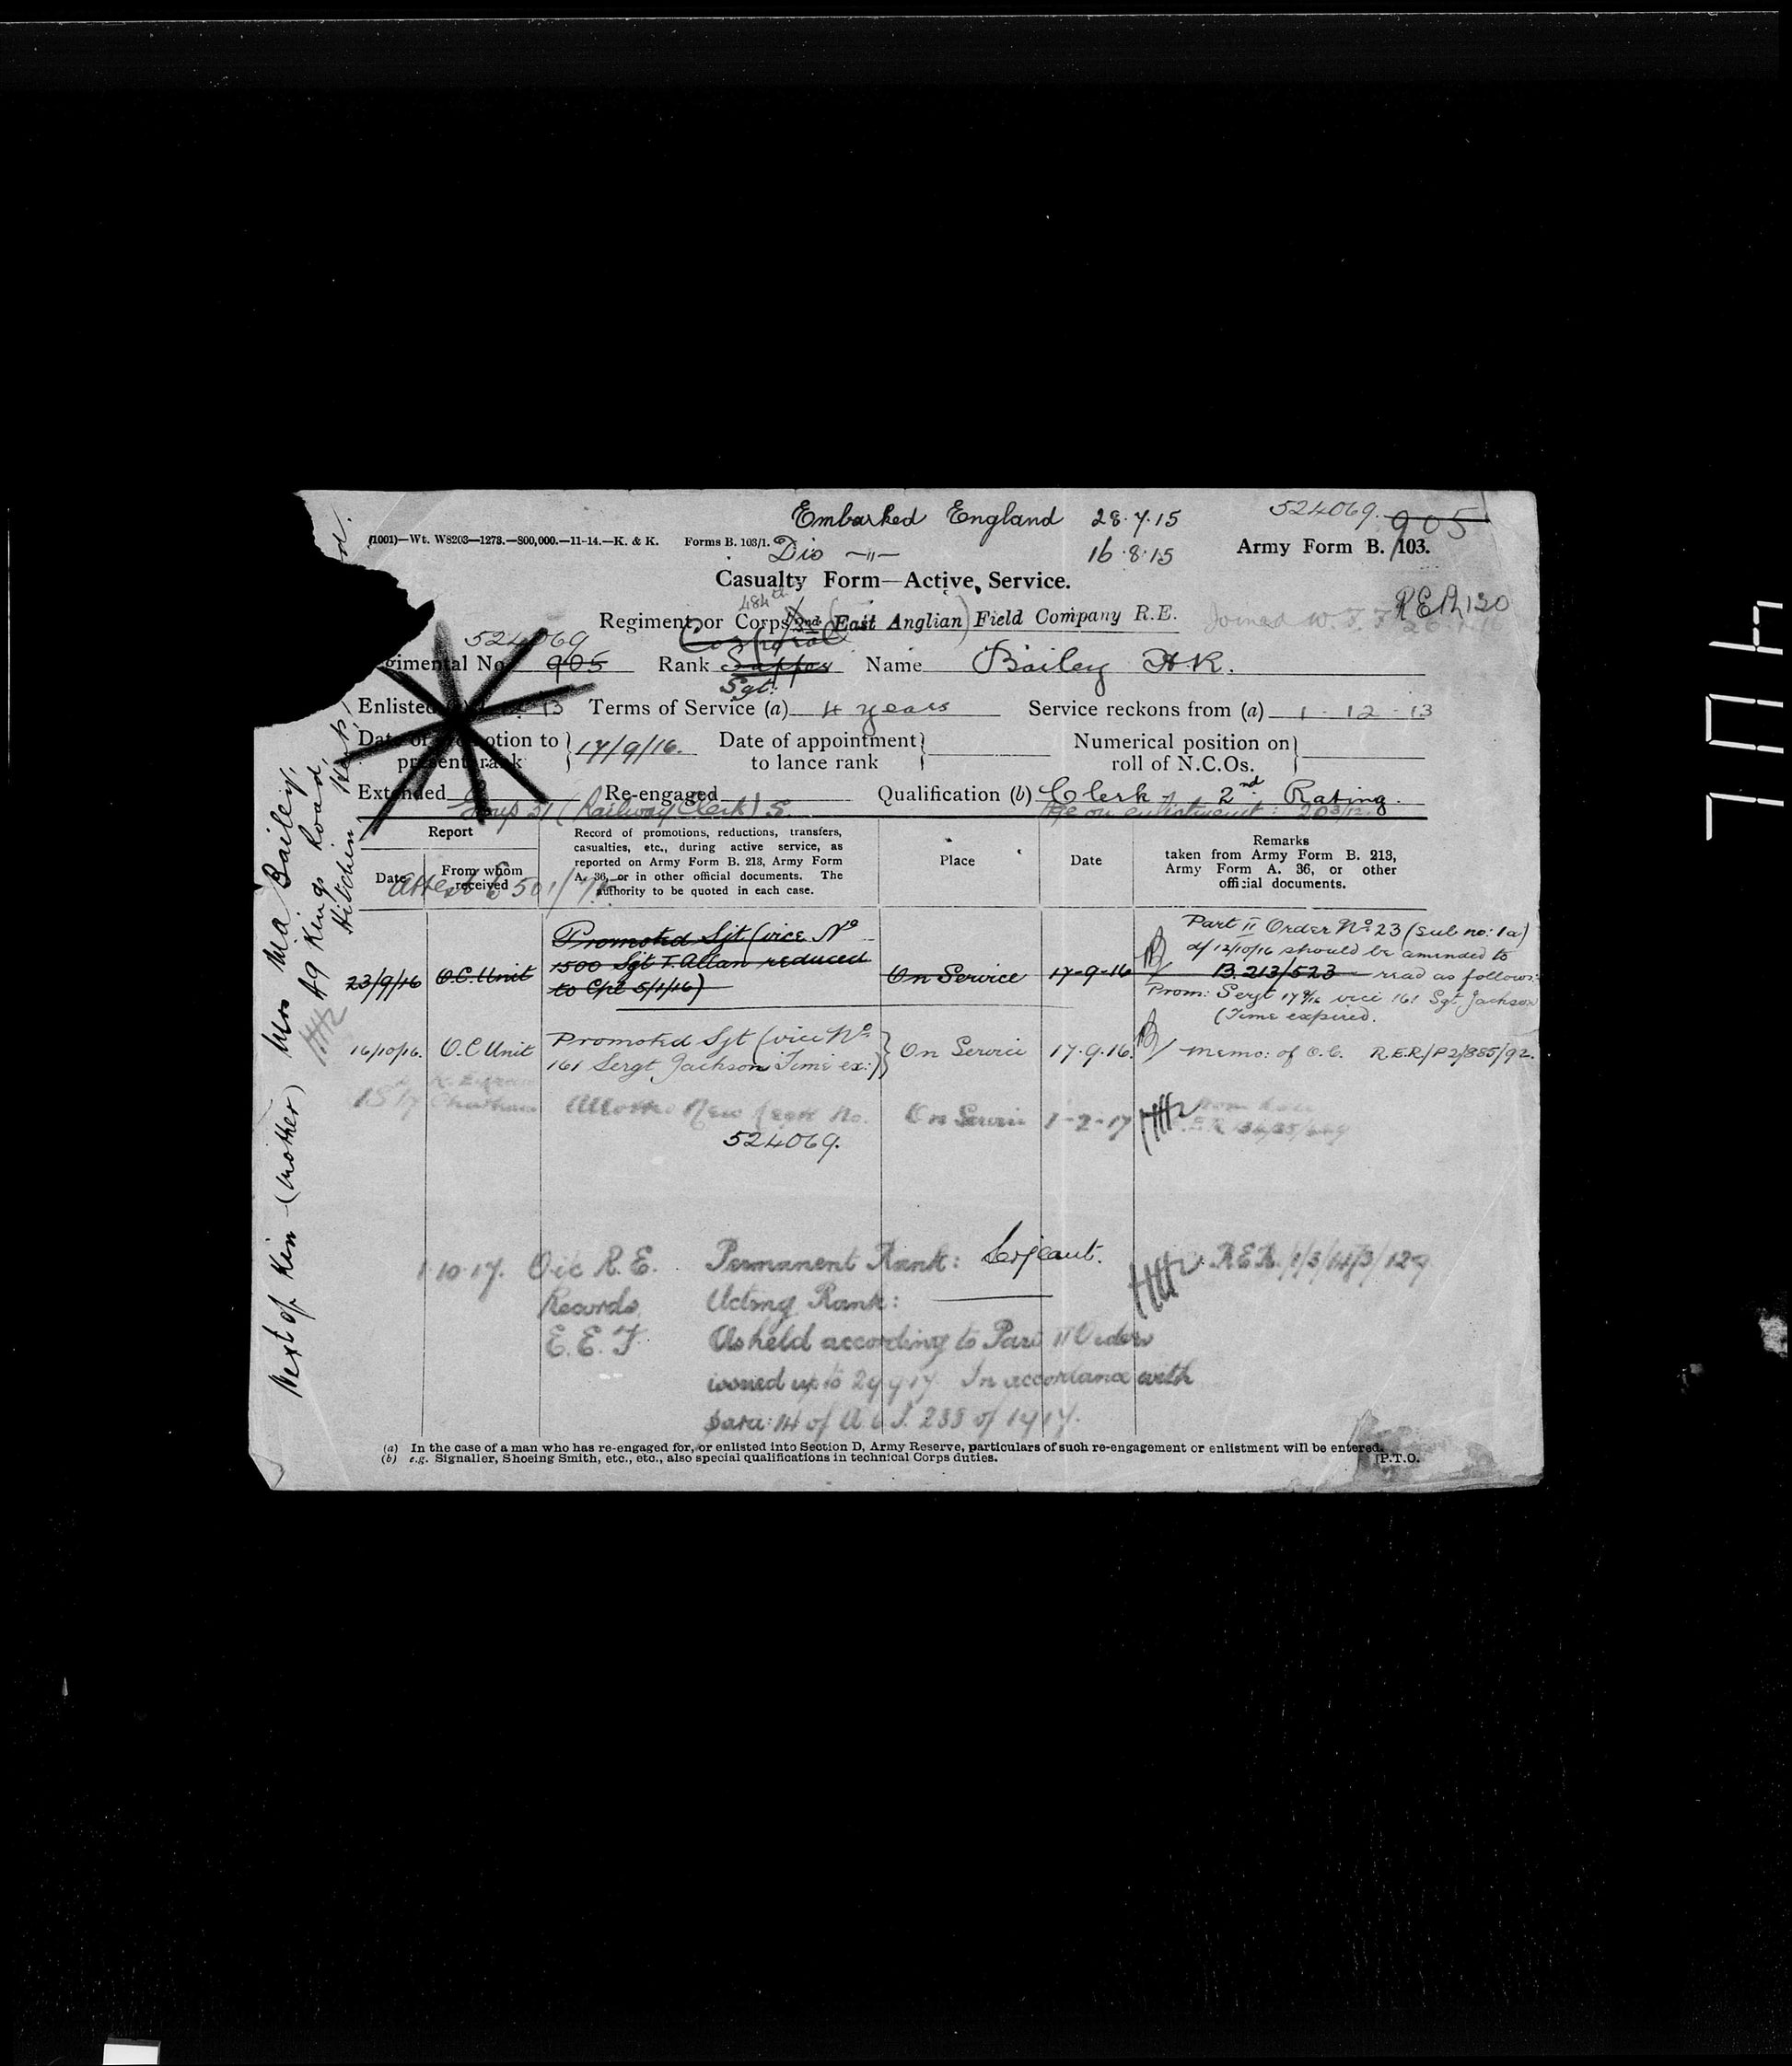 Embarked England 28.7.15
524069. 905
(1001)—Wt. W8203—1273.—800,000.—11-14.—K. & K. Forms B. 103/1.
Dis —"— 16.8.15
Army Form B. 103.
Casualty Form—Active Service.
484th
Regiment or Corps 2nd (East Anglian) Field Company R.E.
Joined
524069
Corporal
gimental No. 905 Rank Sapper Name Bailey
Sgt.
Enlisted 13 Terms of Service (a) 4 years Service reckons from (a) 1-12-13
Date of promotion to present rank } 17/9/16. Date of appointment to lance rank } Numerical position on roll of N.C.Os. }
Extended Re-engaged Qualification (b) Clerk 2nd Rating.
(Railway Clerk) Age on enlistment:
Report
Date From whom received
Record of promotions, reductions, transfers,
casualties, etc., during active service, as
reported on Army Form B. 213, Army Form
A. 36, or in other official documents. The
authority to be quoted in each case.
Place
Date
Remarks
taken from Army Form B. 213,
Army Form A. 36, or other
official documents.
23/9/16 O.C. Unit
Promoted Sjt (vice No
1500 Sgt T. Allan reduced
to Cpl 5/1/16)
On Service 17-9-16
Part II Order No 23 (sub no: 1a)
d/ 12/10/16 should be amended to
B. 213/523 read as follows:
Prom: Sergt 17 9/16 vice 161 Sgt Jackson
(Time expired.
16/10/16. O.C Unit
Promoted Sjt (vice No
161 Sergt Jackson Time ex:)
On Service 17.9.16.
Memo: of O.C. R.E.R/P2/885/92.
Chatham
Allotted New Regtl No. On Service 1-2-17
524069.
1.10.17. O i/c R.E. Permanent Rank: Serjeant.
Records Acting Rank:
E.E.F. As held according to Part II Orders
issued up to 29.9.17. In accordance with
para: 14 of A.C.I. 288 of 1917.
(a) In the case of a man who has re-engaged for, or enlisted into Section D, Army Reserve, particulars of such re-engagement or enlistment will be entered.
(b) e.g. Signaller, Shoeing Smith, etc., etc., also special qualifications in technical Corps duties.
[P.T.O.
Next of Kin - (Mother) Mrs M.A. Bailey,
49 Kings Road,
Hitchin
Herts,